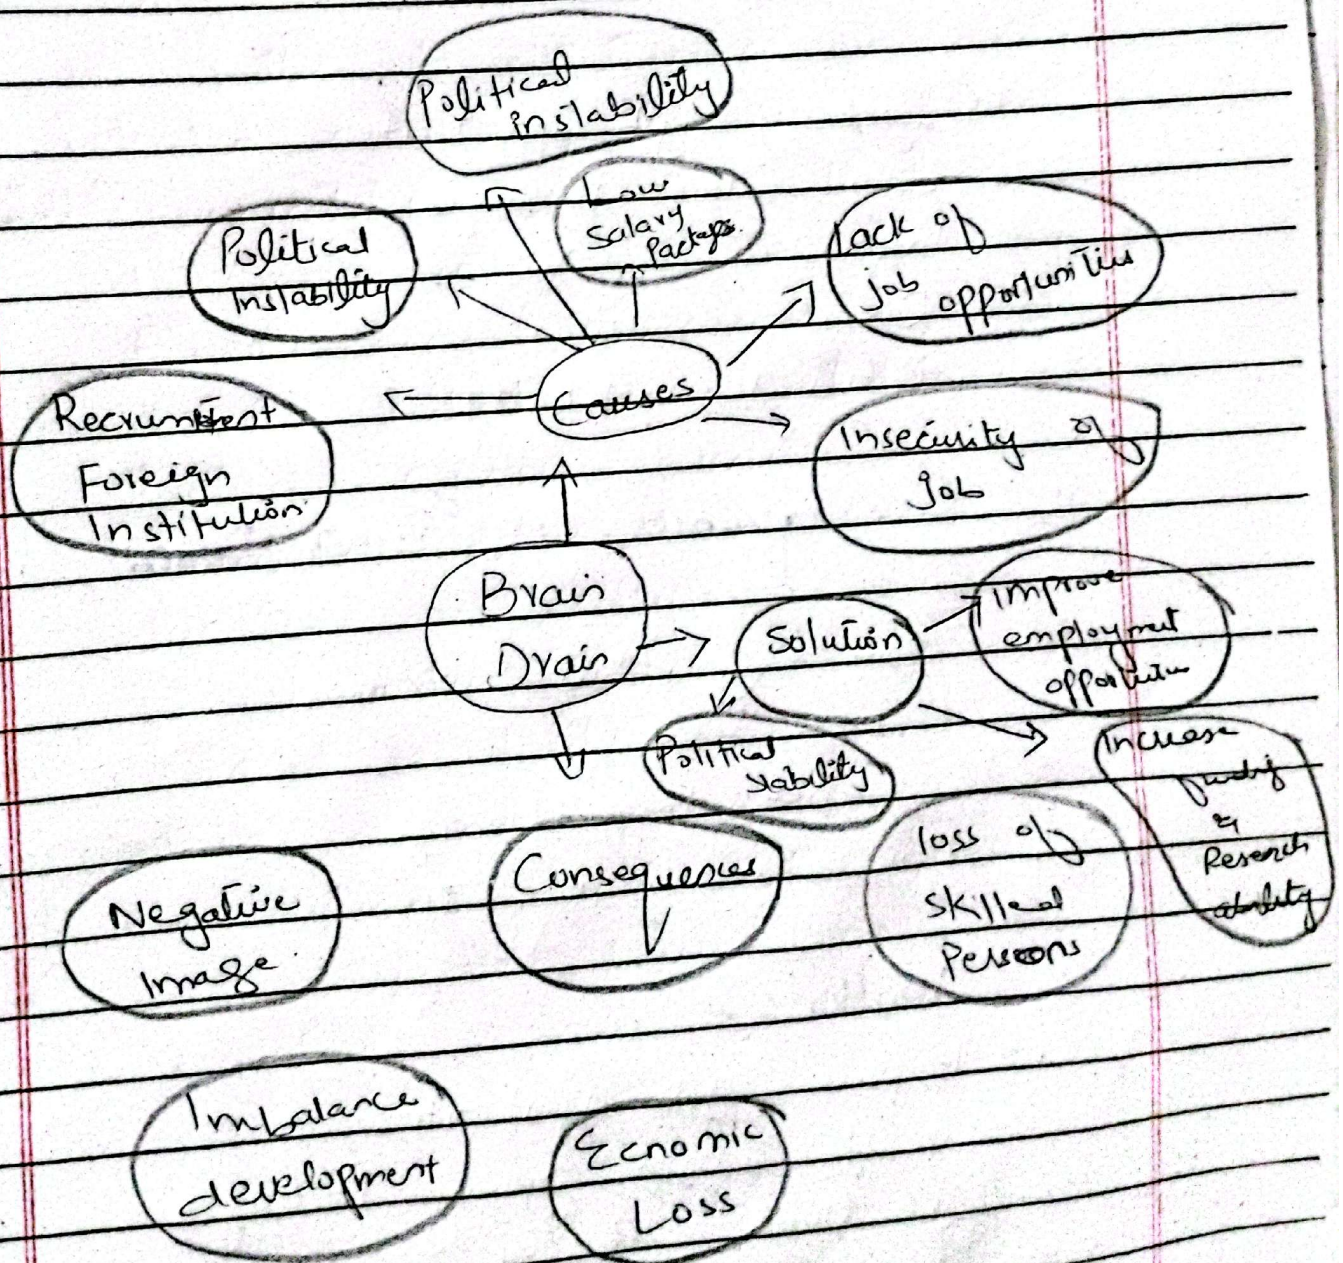 Political
instability
Low
Salary
Package
Political
Instability
Lack of
job opportunities
Causes
Recrumtent
Foreign
Institution
Insecurity of
job
Brain
Drain
Solution
Improve
employment
opportunities
Political
stability
Increase
&
Research
ability
Consequences
loss of
Skilled
Persons
Negative
Image
Imbalance
development
Ecnomic
Loss